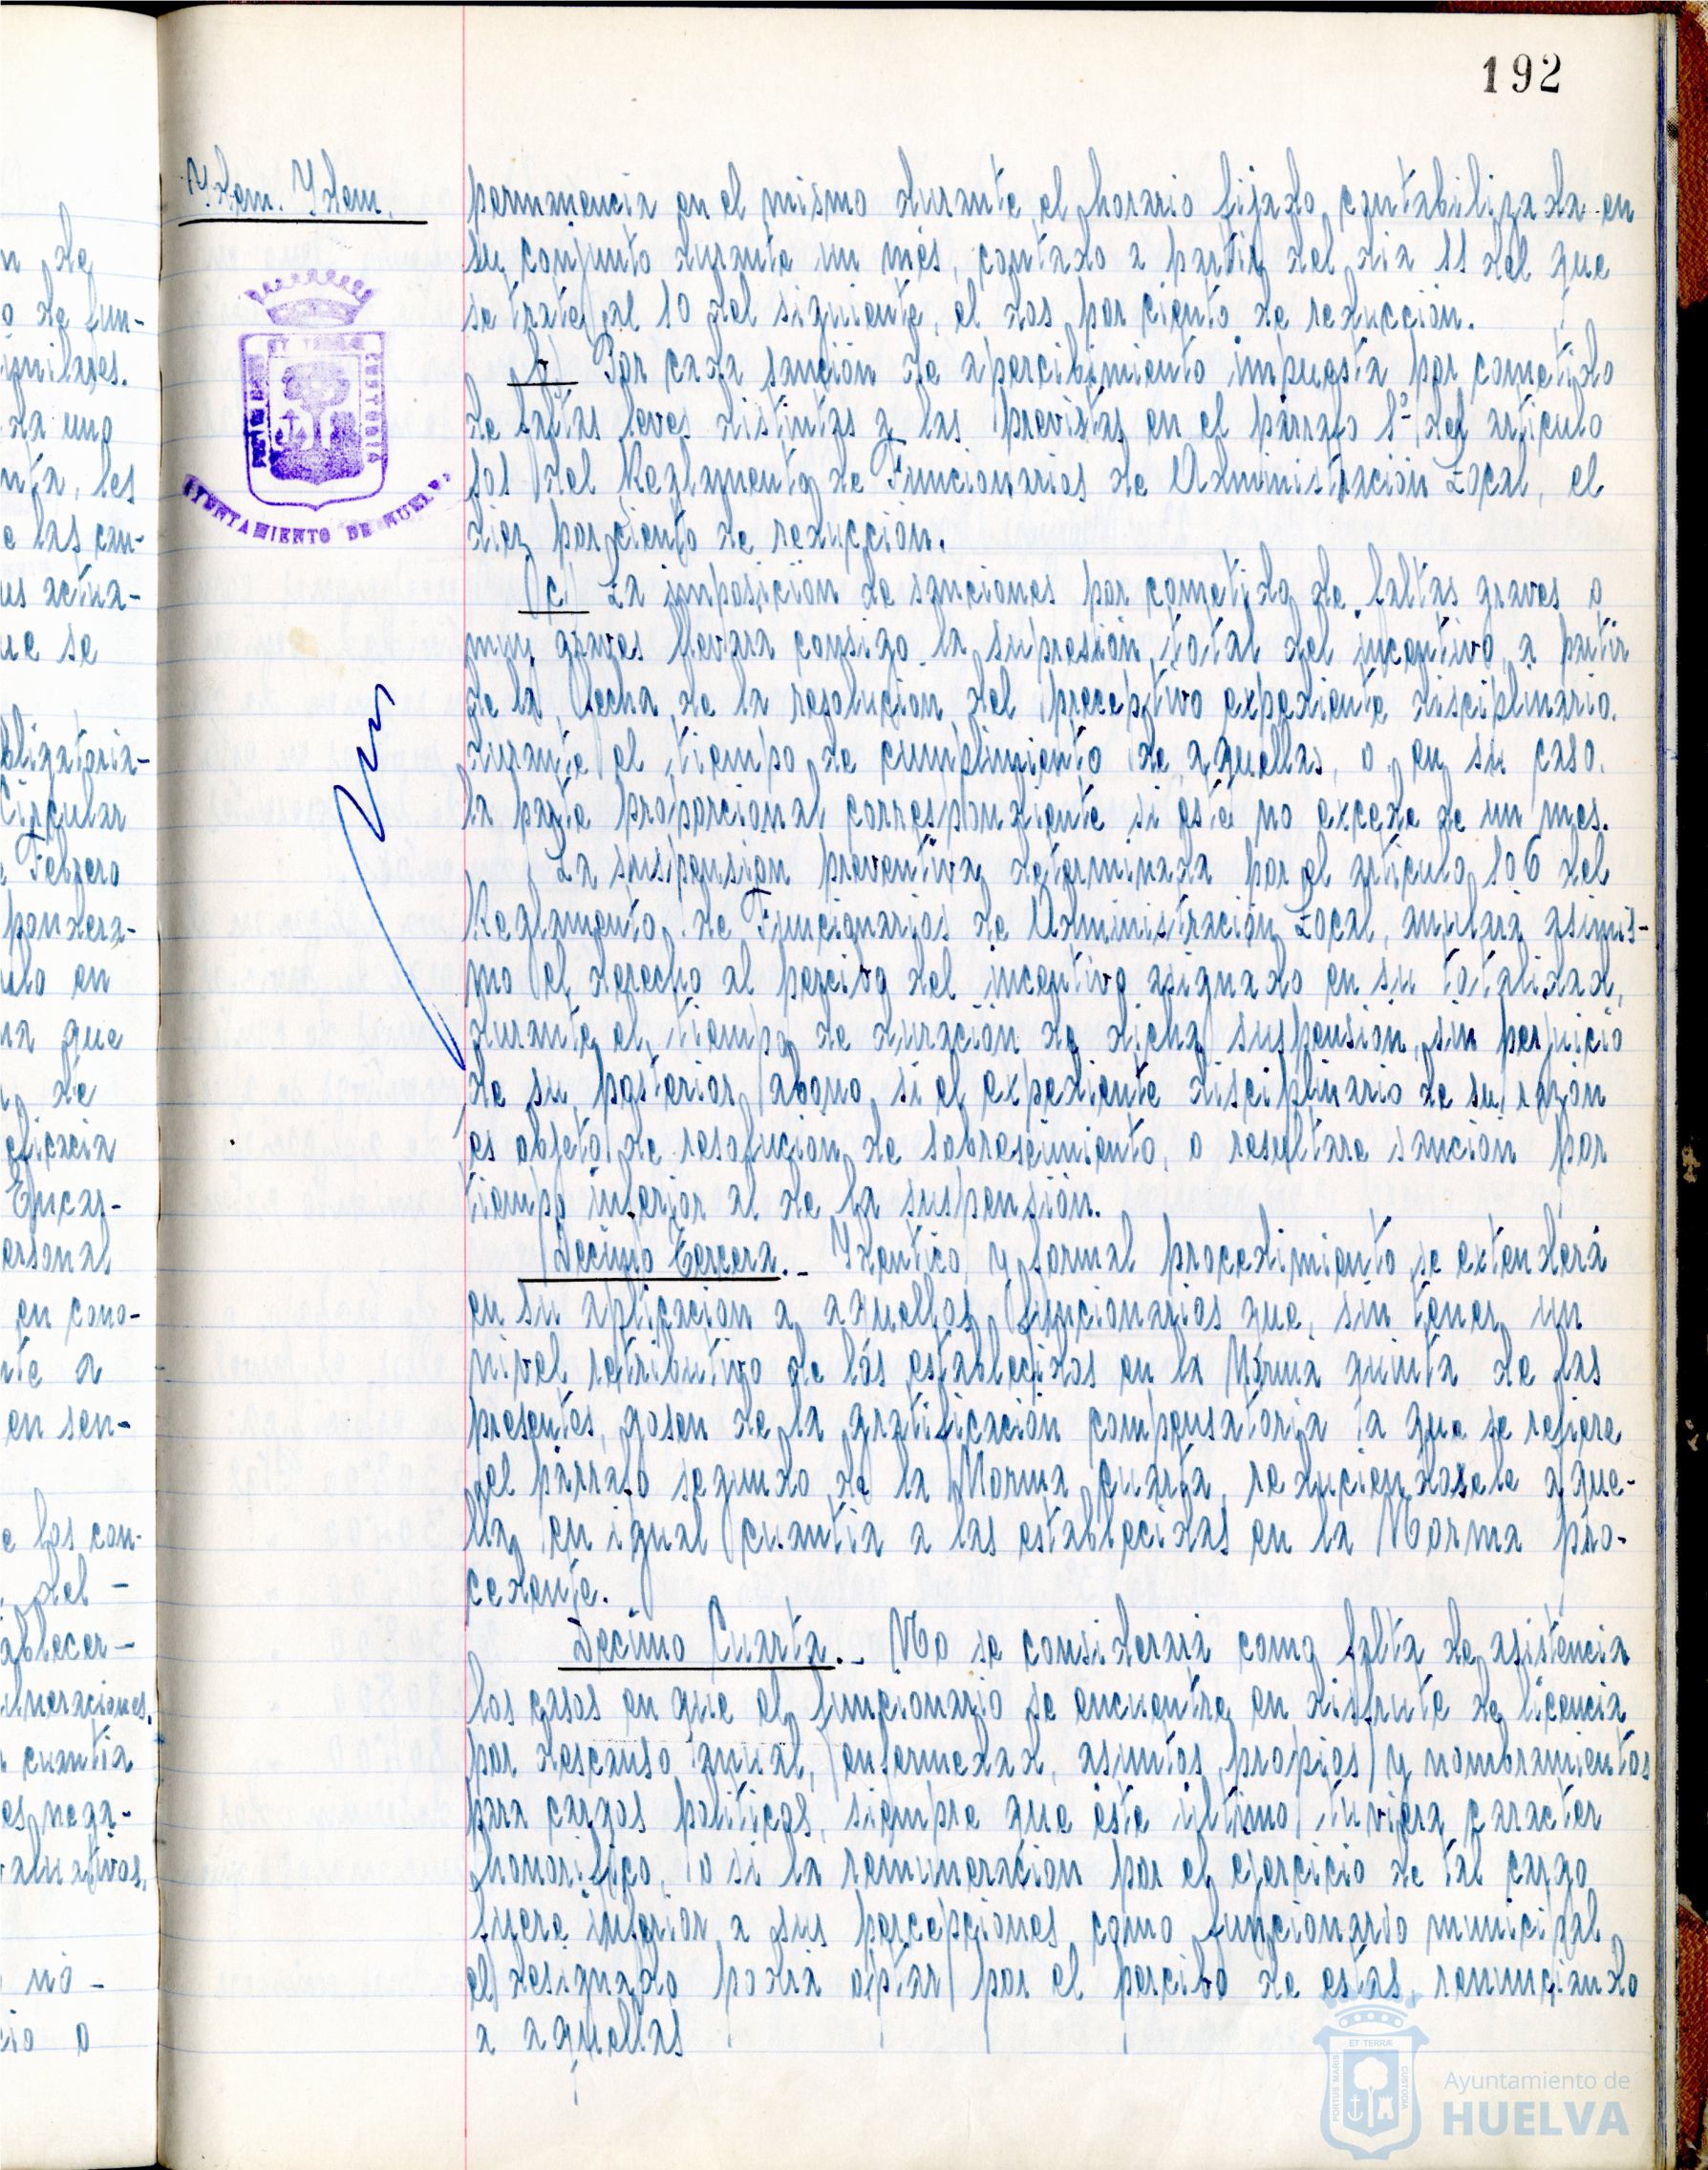 192
Ydem. Ydem.
permanencia en el mismo durante el horario fijado, contabilizada en
su conjunto durante un més, contado a partir del dia 11 del que
se trate al 10 del siguiente, el dos por ciento de reducción.
b) Por cada sanción de apercibimiento impuesta por cometido
de faltas leves distintas a las previstas en el párrafo 1º del articulo
101 del Reglamento de Funcionarios de Administración Local, el
diez por ciento de reducción.
c) La imposición de sanciones por cometido de faltas graves o
muy graves llevara consigo la supresión total del incentivo, a partir
de la fecha de la resolución del preceptivo expediente disciplinario,
durante el tiempo de cumplimiento de aquellas, o, en su caso,
la parte proporcional correspondiente si éste no excede de un mes.
La suspensión preventiva determinada por el articulo 106 del
Reglamento de Funcionarios de Administración Local, anulará asimis-
mo el derecho al percibo del incentivo asignado en su totalidad,
durante el tiempo de duración de dicha suspensión, sin perjuicio
de su posterior abono si el expediente disciplinario de su razón
es objeto de resolución de sobreseimiento, o resultare sanción por
tiempo inferior al de la suspensión.
Decimo Tercera.- Ydentico y formal procedimiento se extenderá
en su aplicación a aquellos funcionarios que, sin tener un
nivel retributivo de lós establecidos en la Norma quinta de las
presentes, gosen de la gratificación compensatoria a que se refiere
el párrafo segundo de la Norma cuarta, reduciendosele aque-
lla en igual cuantia a las establecidas en la Norma pre-
cedente.
Decimo Cuarta.- No se considerará como falta de asistencia
los casos en que el funcionario se encuentre en disfrute de licencia
por descanso anual, enfermedad, asuntos propios y nombramientos
para cargos politicos, siempre que éste ultimo tuviera caracter
honorifico, o si la remuneración por el ejercicio de tal cargo
fuere inferior a sus percepciones como funcionario municipal,
el designado podrá optar por el percibo de estas, renunciando
a aquellas
AYUNTAMIENTO DE HUELVA
n de
o de fun-
similares.
da uno
nta, les
e las can-
us actua-
ue se
bligatoria-
Circular
Febrero
pondera-
ulo en
na que
de
eficacia
Encar-
ersonal
en cono-
nte a
en sen-
e los con-
del -
ablecer-
uneraciones.
cuantia
es nega-
valuativos.
no-
cio o
ET TERRÆ
PORTUS MARIS
CUSTODIA
Ayuntamiento de
HUELVA